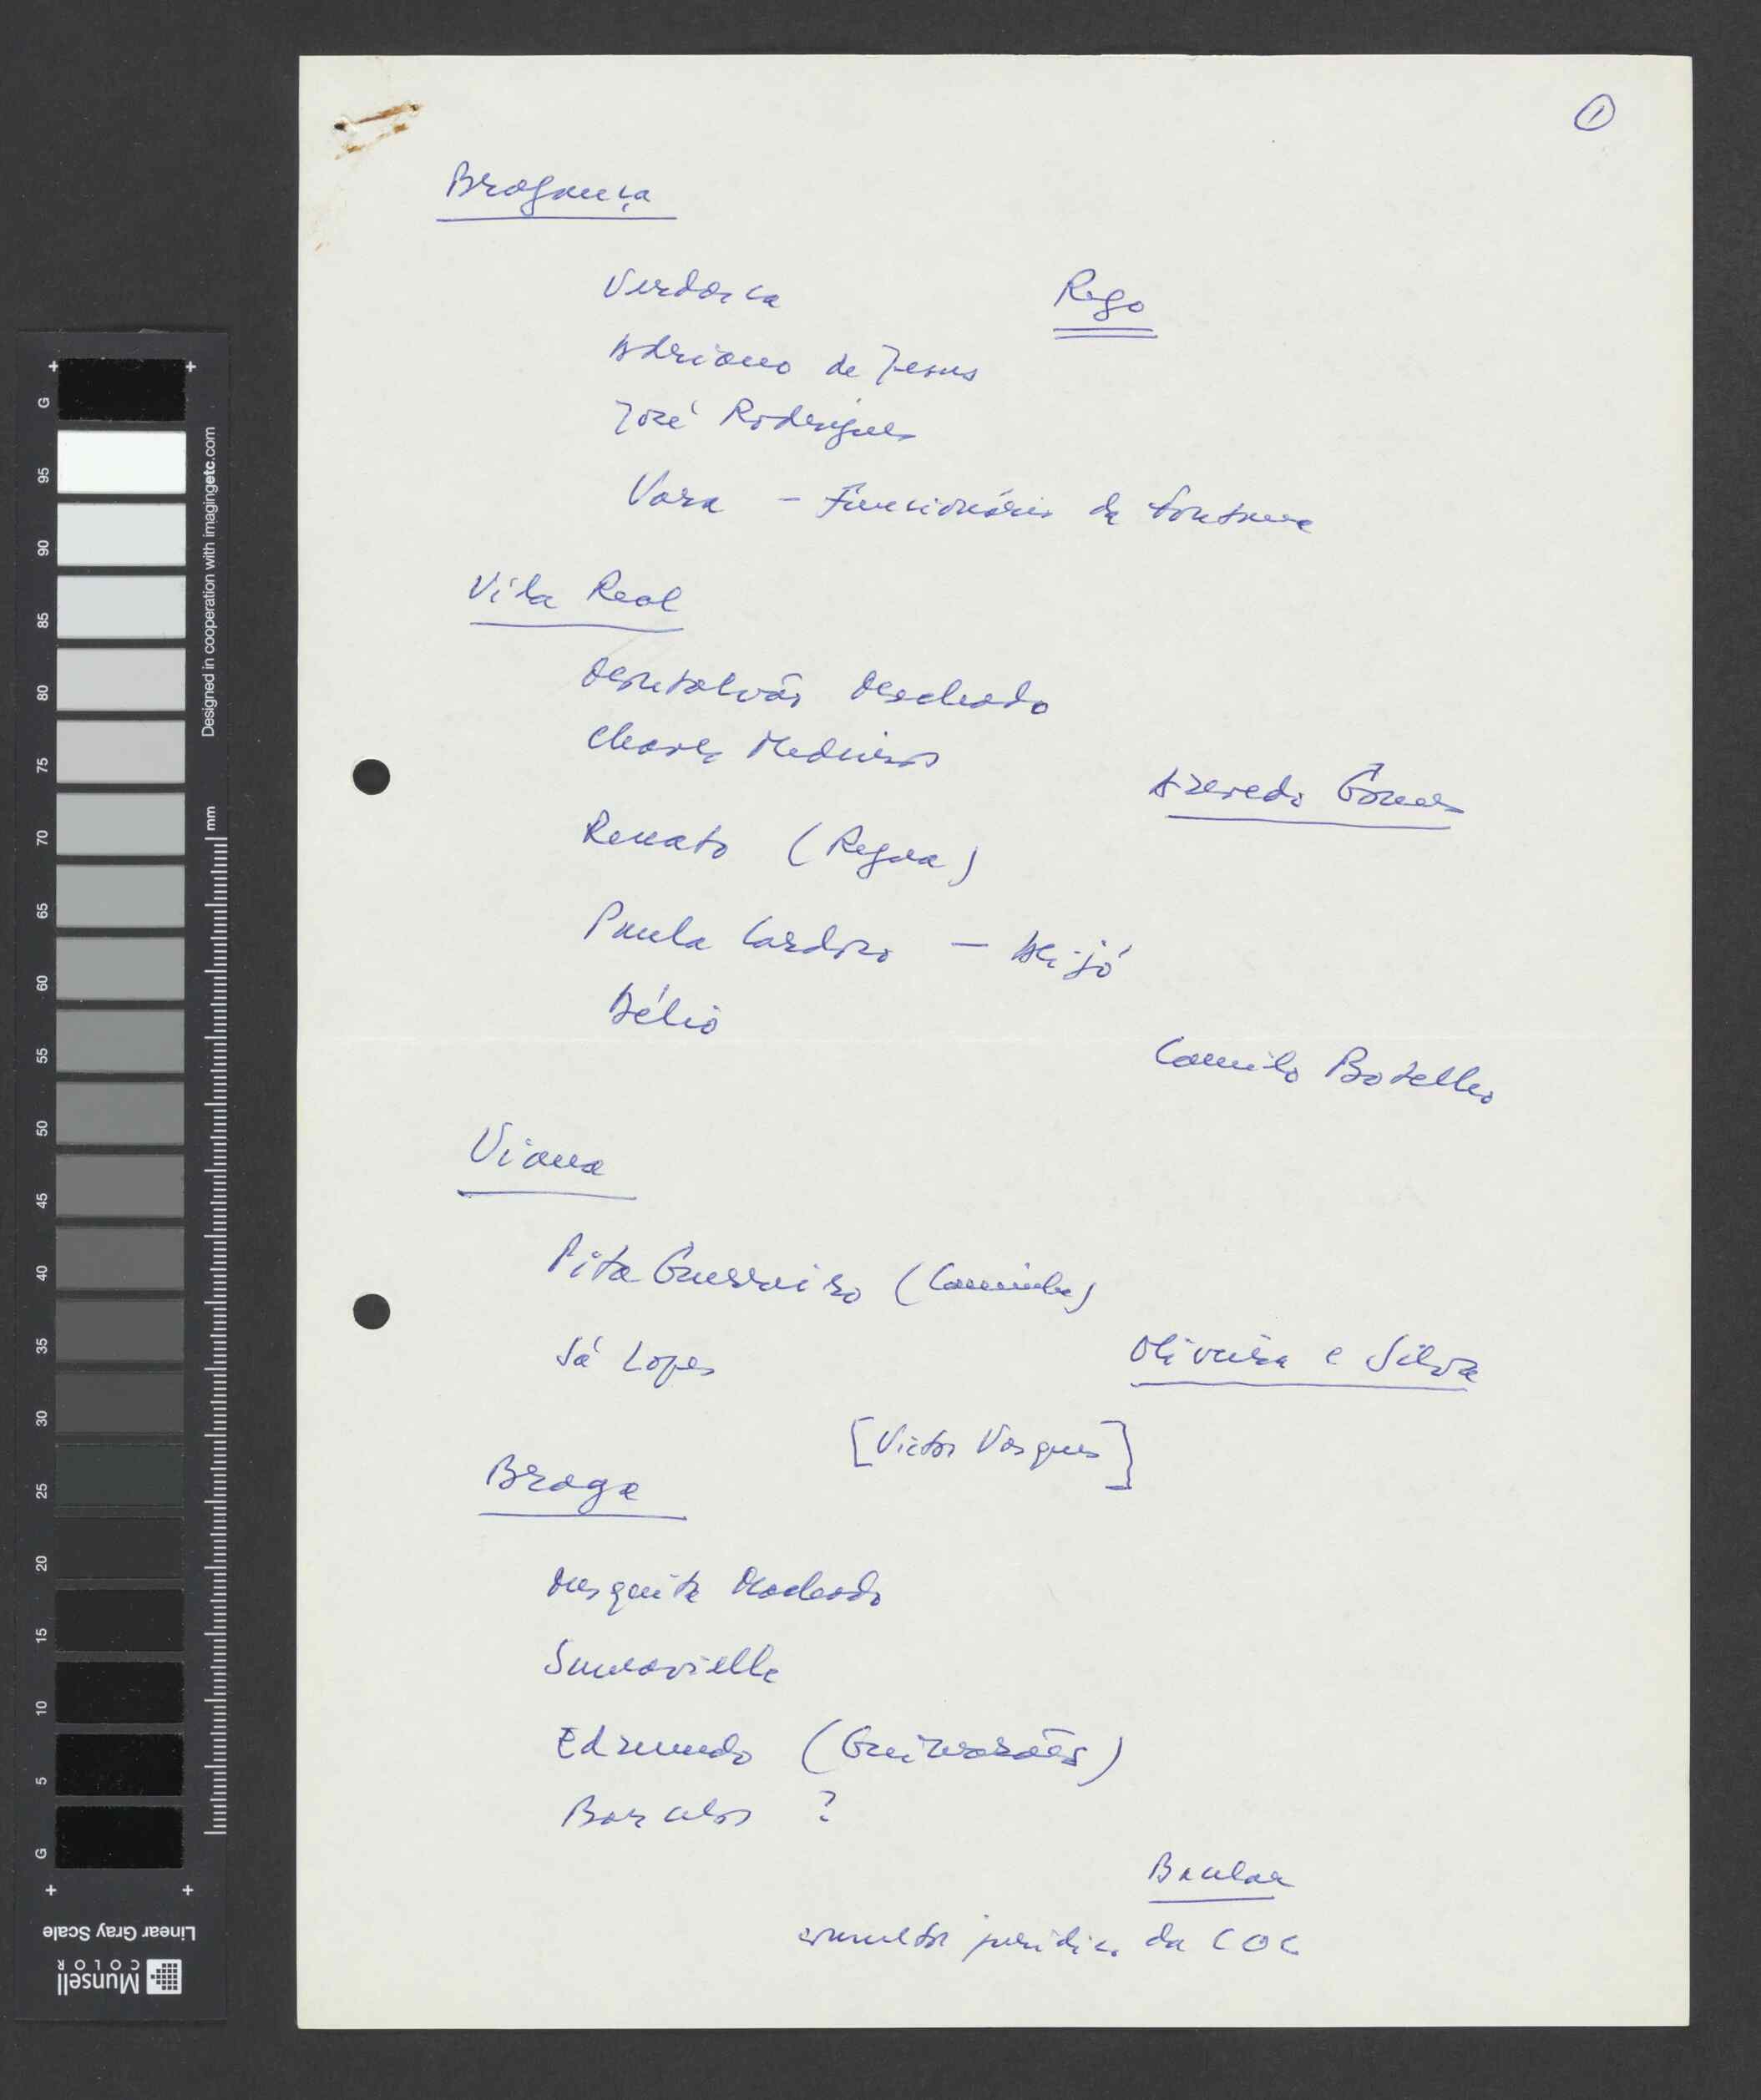 ①
Bragança
Verdasca Rego
Adriano de Jesus
José Rodrigues
Vara - Funcionário da
Vila Real
Montalvão Machado
Chaves Medeiros
Azevedo Gomes
Renato (Regua)
Paula Cardoso - Alijó
Délio
Camilo Botelho
Viana
Pita Guerreiro (Caminha)
Sá Lopes
Oliveira e Silva
[Victor Vasques]
Braga
Mesquita Machado
Sumavielle
Edmundo (Guimarães)
Barcelos ?
Bacelar
consultor jurídico da COC
G
95
90
85
80
75
70
65
60
55
50
45
40
35
30
25
20
15
10
5
G
mm
Designed in cooperation with imagingetc.com
Linear Gray Scale
Munsell
COLOR